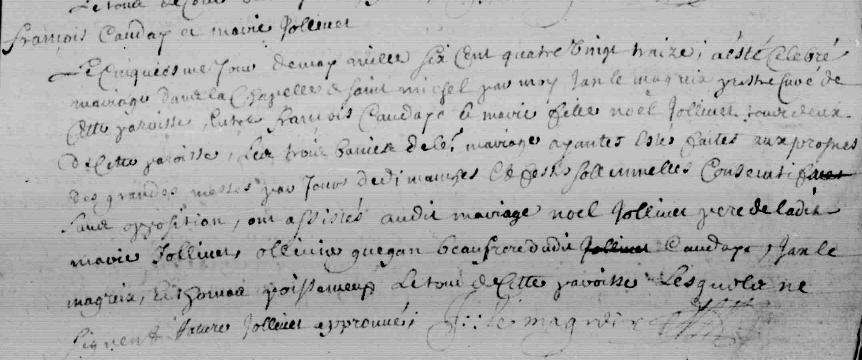 Le tout de cette
françois Caudap et marie Jollivet
Le Cinquiesme Jour de may mille six Cent quatre vingt traize ; a esté Celebré
mariage dans la Chapelle de saint michel par moy Jan le magreix prestre Curé de
Cette paroisse, Entre françois Caudape & marie fille noël Jollivet tout deux
de Cette paroisse, Les trois banies de leur mariage ayantes Estes faites aux prosnes
des grandes messes par Jours de dimanches Et festes sollemnelles Consecutifves
sans opposition, ont assistés audit mariage noel Jollivet pere de ladite
marie Jollivet, ollivier guegan beaufrere dudit Jollivet Caudape, Jan le
magreix, et thomas Le tout de Cette paroisse Lesquels ne
signent Jollivet approuvé ; J : le magreix